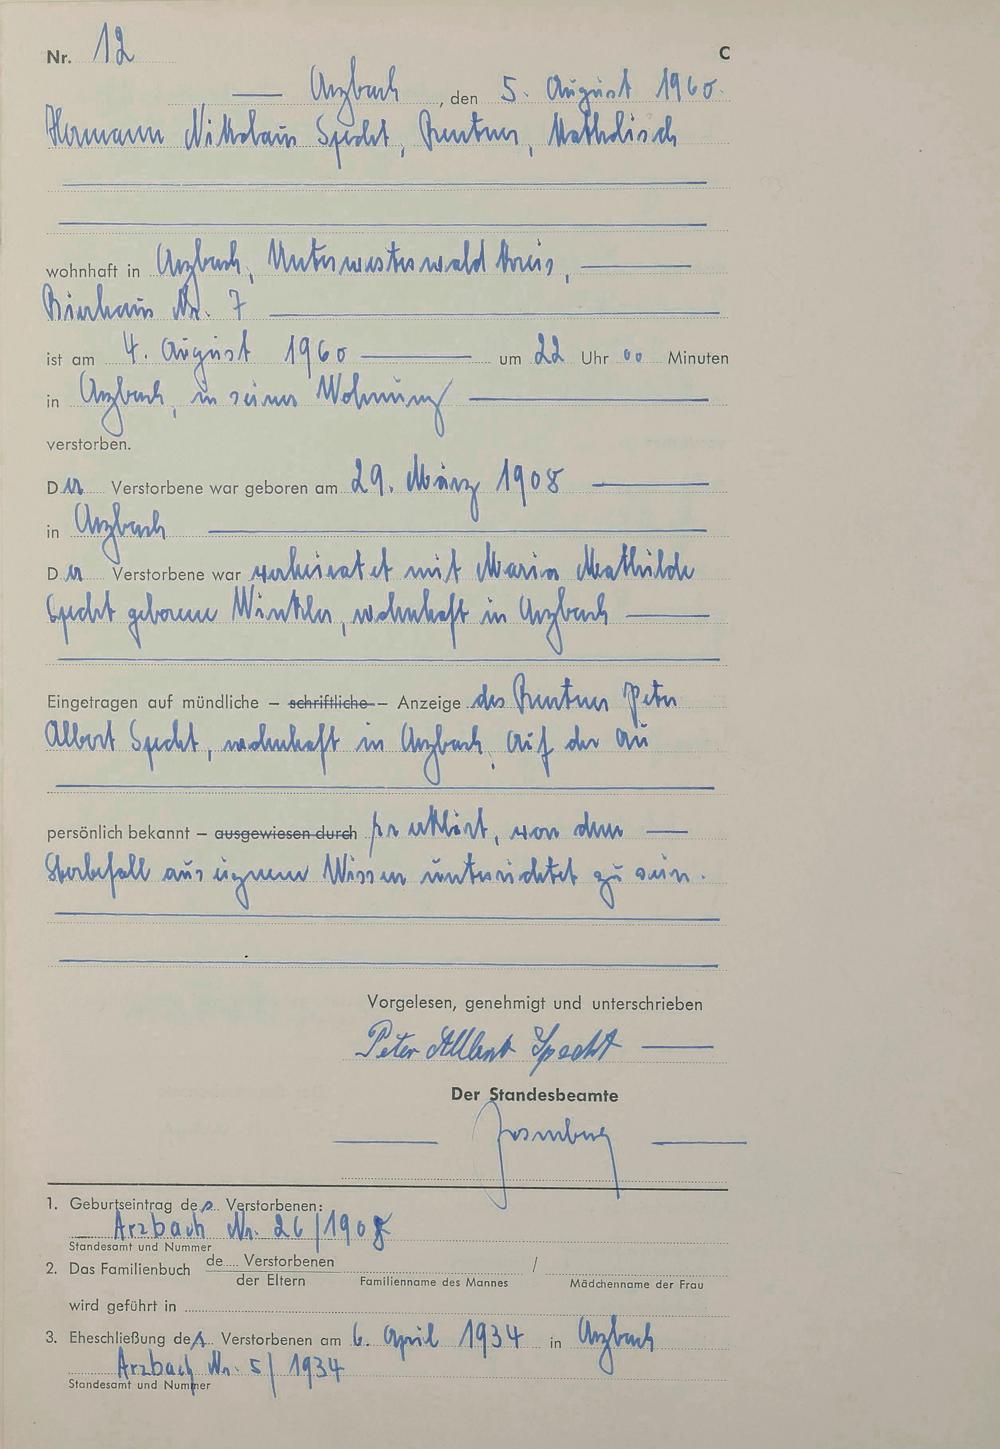 Nr. 12
C
Arzbach, den 5. August 1960.
Hermann Nikolaus Specht, Rentner, katholisch
wohnhaft in Arzbach, Unterwesterwaldkreis,
Bierhaus Nr. 7
ist am 4. August 1960 um 22 Uhr 00 Minuten
in Arzbach, in seiner Wohnung
verstorben.
Der Verstorbene war geboren am 29. März 1908
in Arzbach
Der Verstorbene war verheiratet mit Maria Mathilde
Specht geborene Winkler, wohnhaft in Arzbach
Eingetragen auf mündliche – schriftliche – Anzeige des Rentner Peter
Albert Specht, wohnhaft in Arzbach, Auf der Au
persönlich bekannt – ausgewiesen durch er erklärt, von dem
Sterbefall aus eigenem Wissen unterrichtet zu sein.
Vorgelesen, genehmigt und unterschrieben
Peter Albert Specht
Der Standesbeamte
1. Geburtseintrag des Verstorbenen:
Arzbach Nr. 26/1908
Standesamt und Nummer
2. Das Familienbuch de.... Verstorbenen /
der Eltern Familienname des Mannes Mädchenname der Frau
wird geführt in
3. Eheschließung des Verstorbenen am 6. April 1934 in Arzbach
Arzbach Nr. 5/1934
Standesamt und Nummer